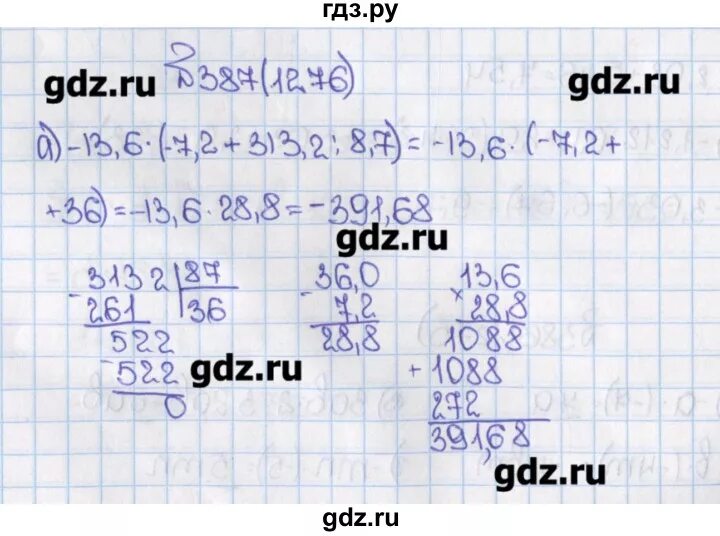 гдз.ру
gdz.ru
gdz.ru
№387(1276)
а) -13,6·(-7,2 + 313,2 : 8,7) = -13,6·(-7,2 +
+36) = -13,6·28,8 = -391,68
gdz.ru
3132 | 87
- 261 | 36
522
- 522
0
36,0
- 7,2
28,8
13,6
× 28,8
1088
+ 1088
272
391,68
gdz.ru
gdz.ru
gdz.ru